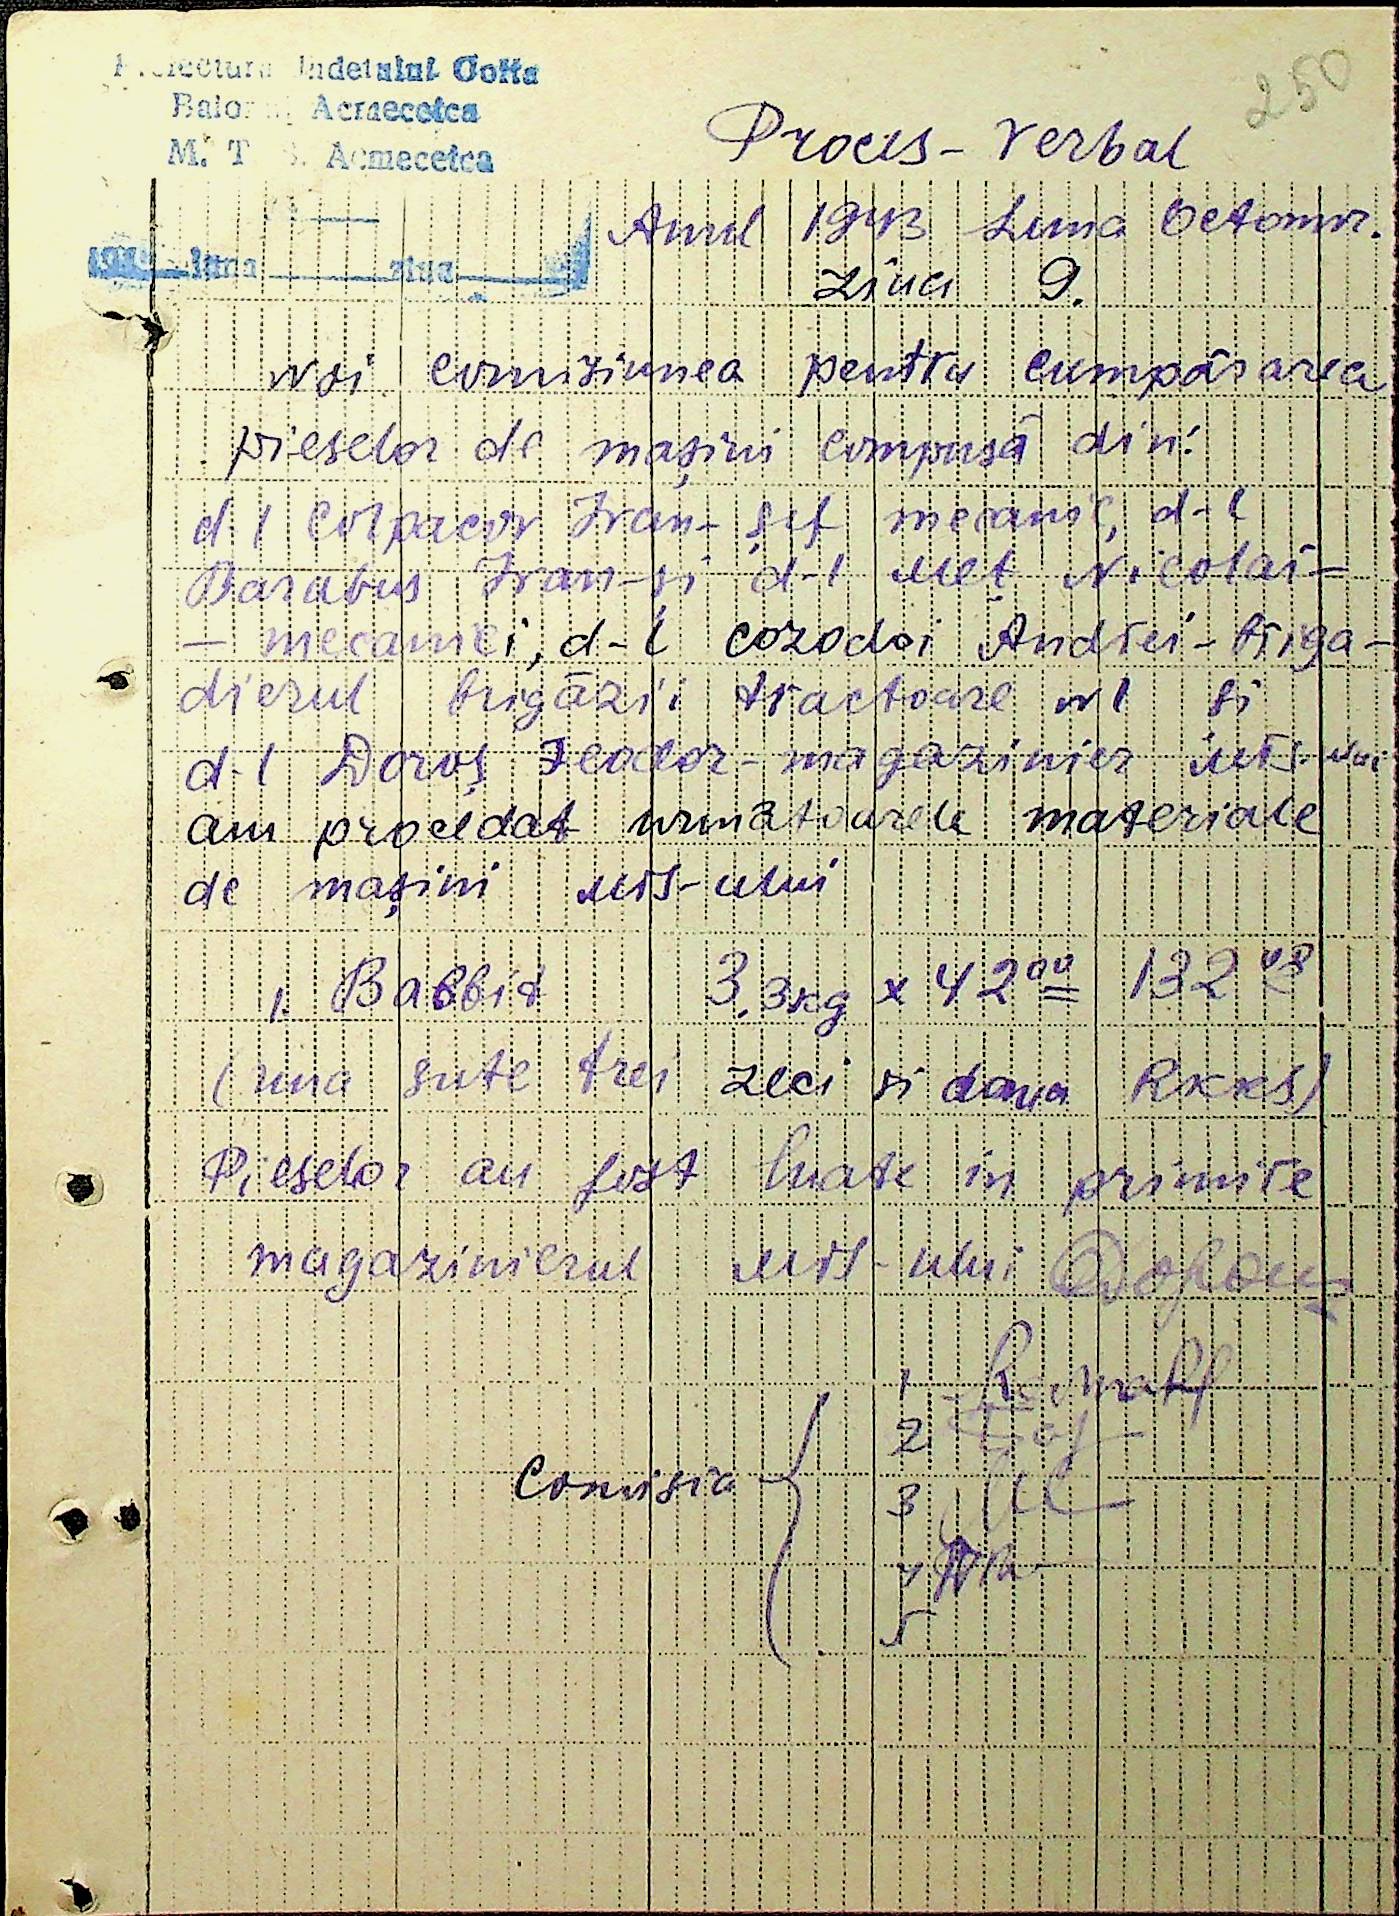 250
Prefectura Judetului Golta
Raionul Acmecetca
M. T. S. Acmecetca
194 luna ziua
Proces-Verbal
Anul 1943 Luna Octomvr.
Ziua 9.
Noi comiziunea pentru cumpărarea
pieselor de mașini compusă din:
d-l Colpacov Ivan- șef mecanic, d-l
Barabus Ivan-și d-l Meț Nicolai-
- mecanici, d-l Cozodoi Andrei-briga-
dierul brigăzii tractoare N1 și
d-l Doroș Feodor-magazinier MTS. Noi
am procedat următoarele materiale
de mașini MTS-ului
1. Babbit 3.3 kg x 42 00 132
(una sute trei zeci și doua RKKS)
Pieselor au fost luate in primire
magazinierul MTS-ului
1
2
Comisia 3
4
5